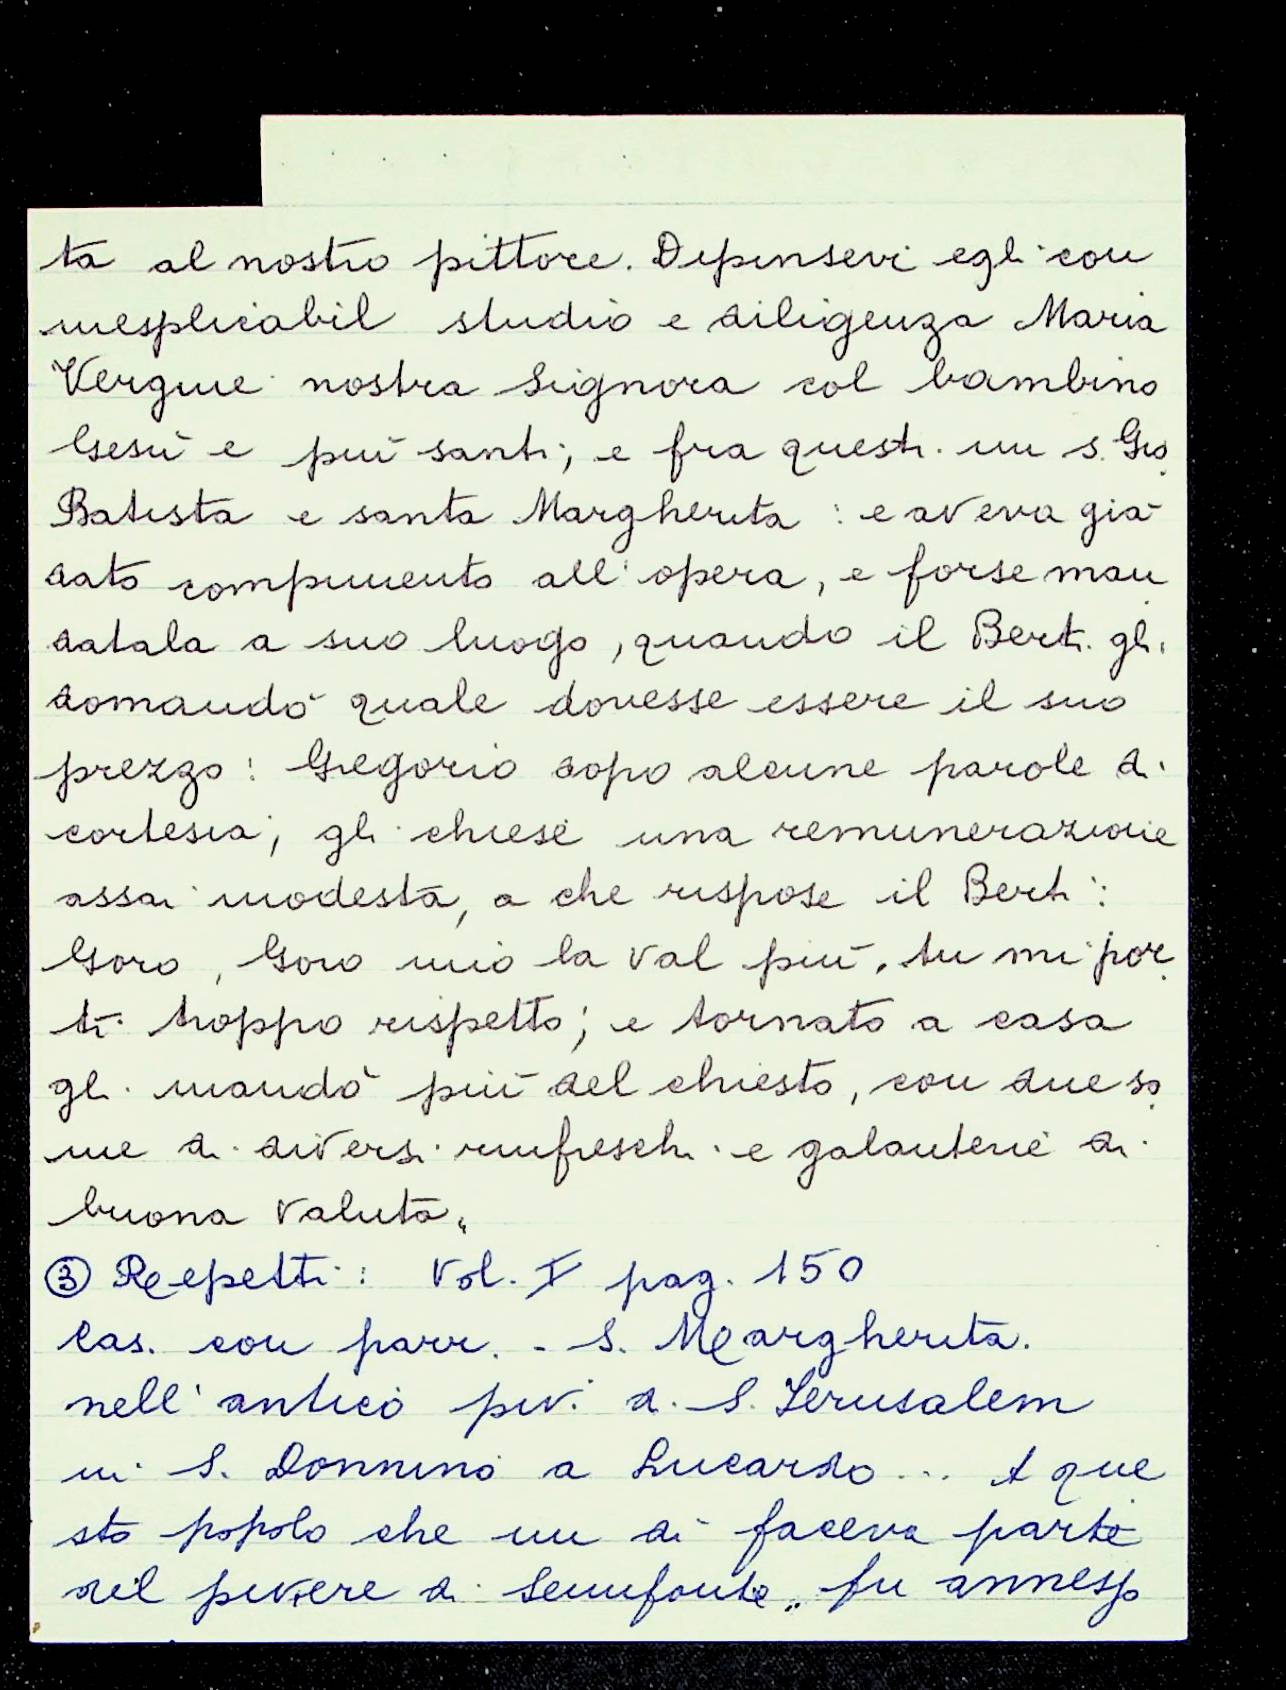 ta al nostro pittore. Dipinsevi egli con
inesplicabil studio e diligenza Maria
Vergine nostra Signora col bambino
Gesù e più santi; e fra questi un S. Gio.
Batista e santa Margherita: e aveva già
dato compimento all'opera, e forse man
datala a suo luogo, quando il Berti gli
domandò quale dovesse essere il suo
prezzo: Gregorio dopo alcune parole di
cortesia, gli chiese una remunerazione
assai modesta, a che rispose il Berti:
Goro, Goro mio la val più, tu mi por
ti troppo rispetto; e tornato a casa
gli mandò più del chiesto, con due so
me di diversi rinfreschi e galanterie di
buona valuta„
③ Repetti: Vol. V pag. 150
Cas. con parr. - S. Margherita.
nell'antico piv. di S. Jerusalem
in S. Donnino a Lucardo... A que
sto popolo che un dì faceva parte
del piviere di Semifonte„ fu annesso